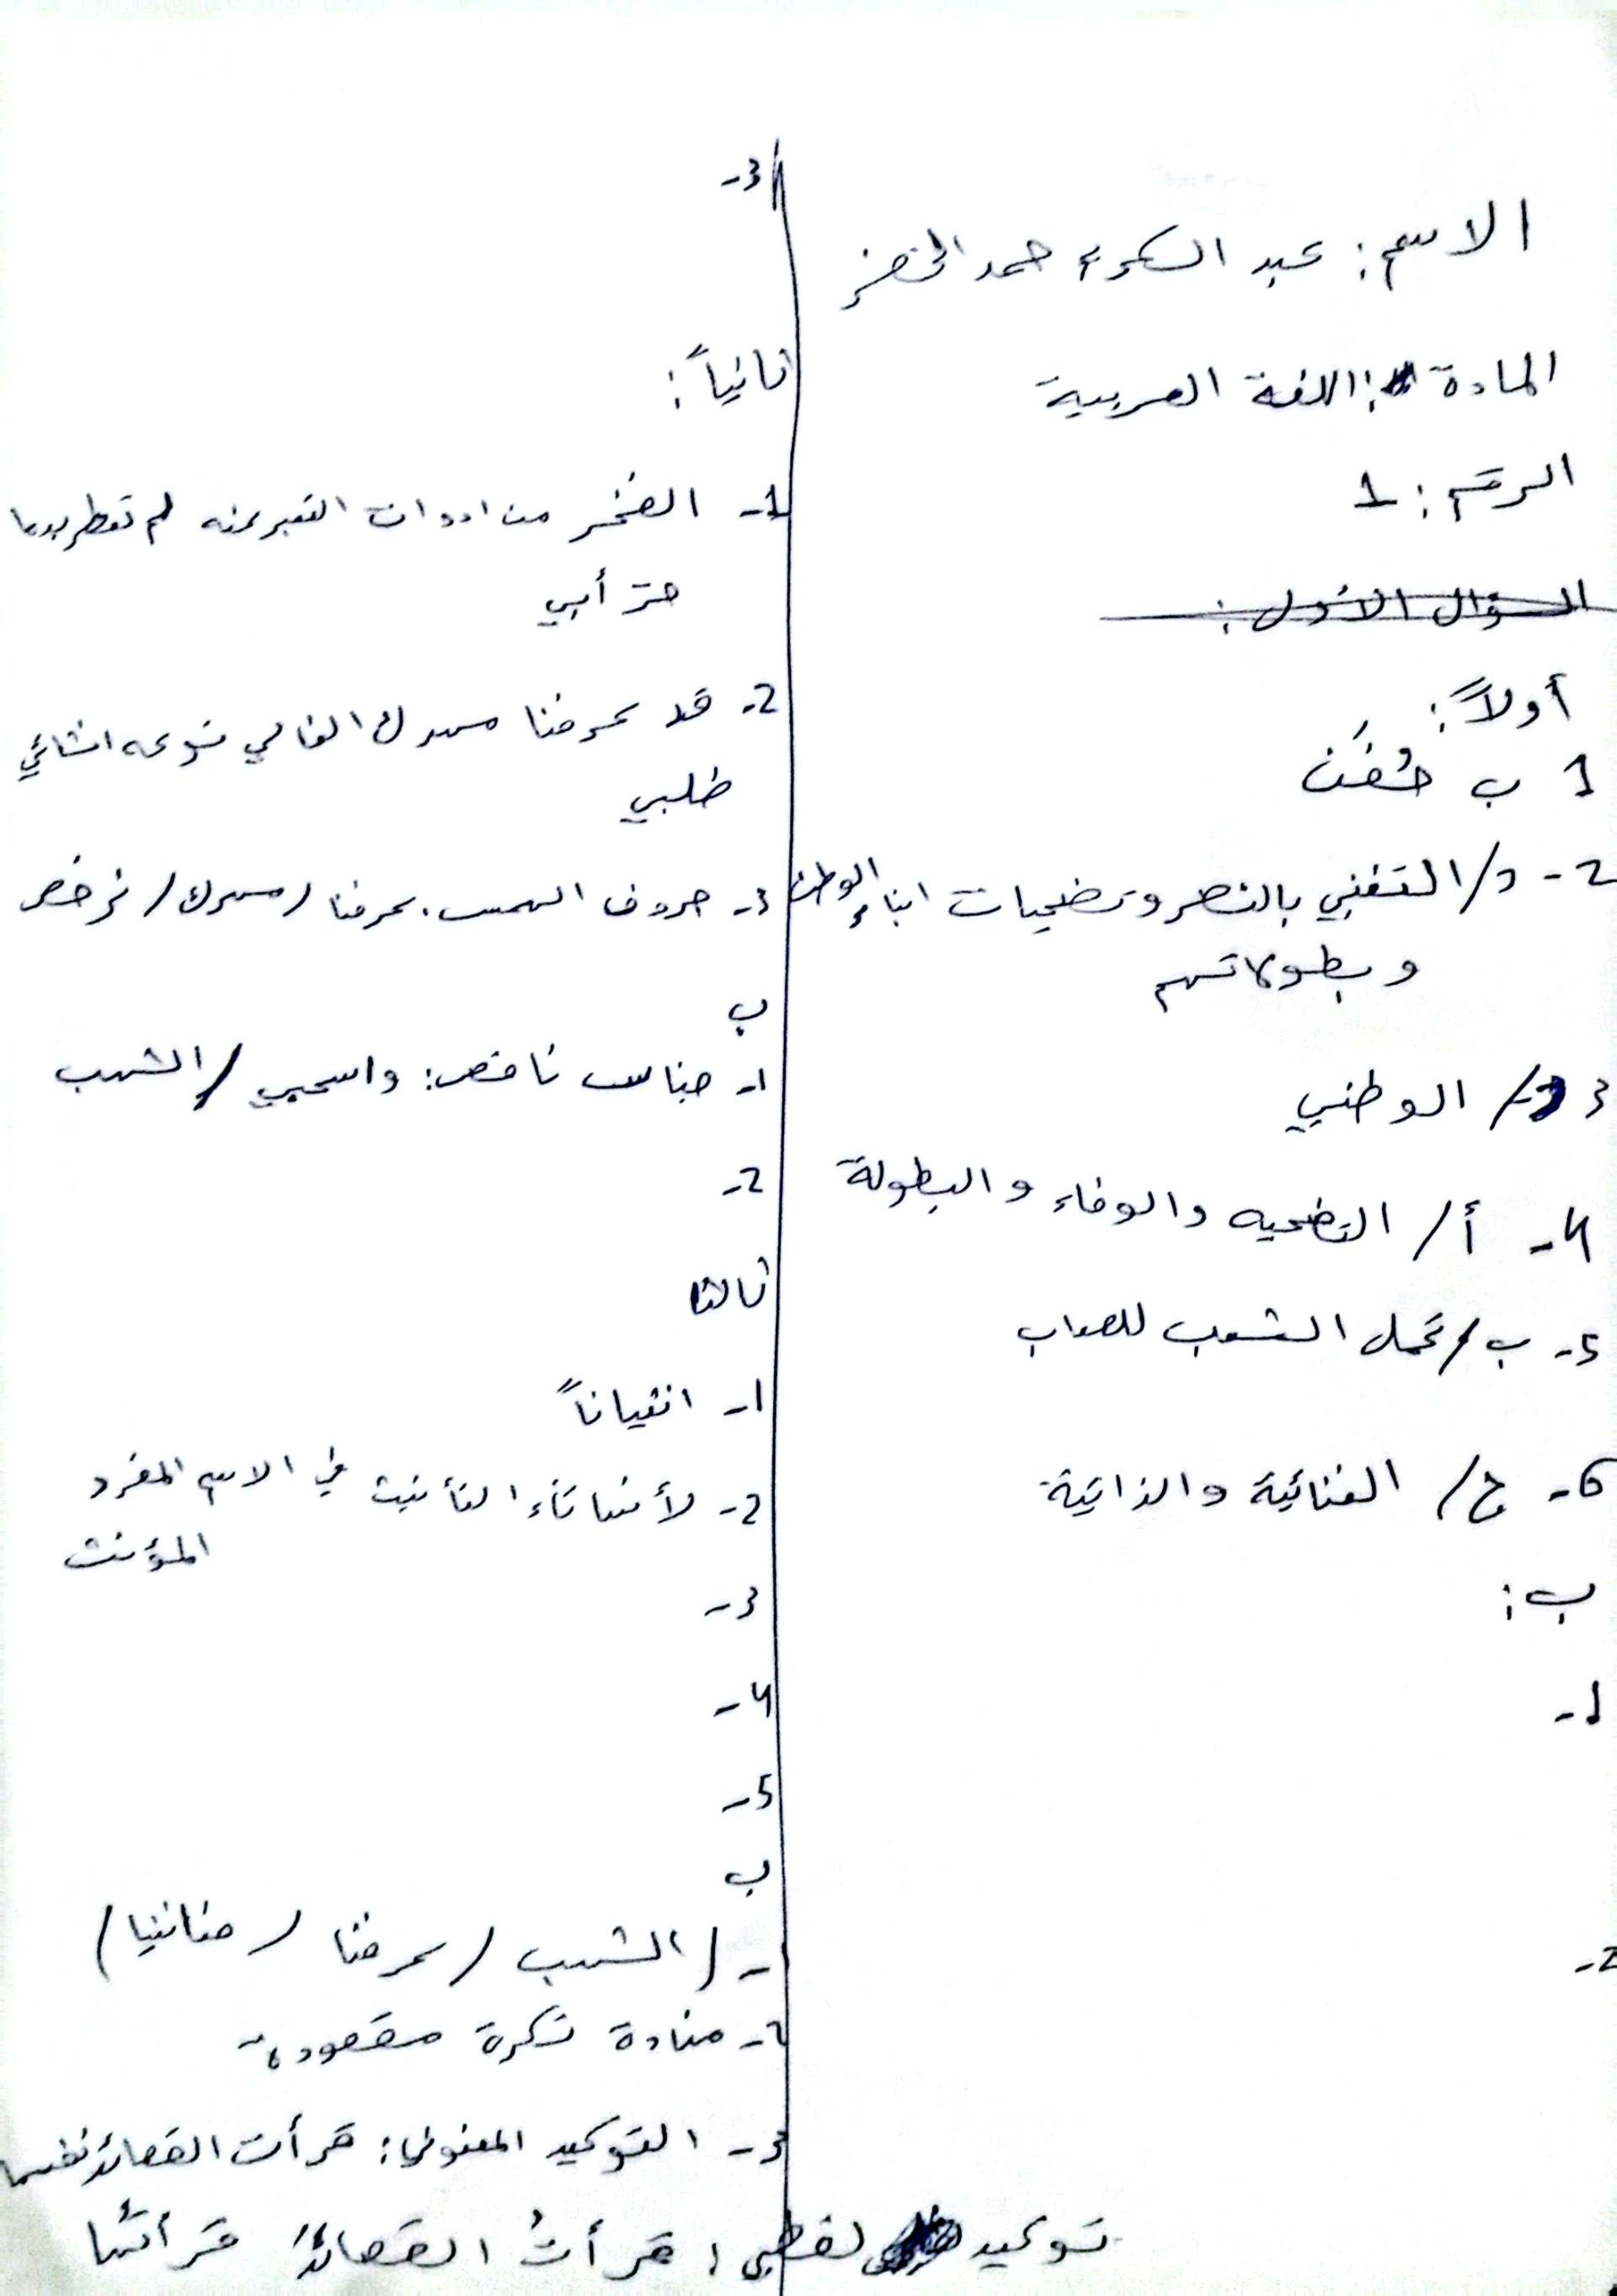 الاسم: عبد السكوء حمد الخضر
المادة: اللغة العربية
الرقم: 1
السؤال الأول:
أولاً:
1 ب خُفَت
2- د/ التغني بالنصر وتضحيات ابناء الوطن
وبطولاتهم
3 د/ الوطني
4- أ/ التضحيه والوفاء والبطولة
5- ب/ تحمل الشعب للصعاب
6- ج/ الغنائية والذاتية
ب:
1-
2-
3-
ثانياً:
1- الفخر من ادوات التعبير عنه لم
حرّ أبي
2- قد عرفنا مهرك الغالي نوعه انشائي
طلبي
3- حروف الهمس. عرفنا / مهرك / نرخص
ب
1- جناس ناقص: واسحبي / الشهب
2-
ثالثا
1- اتياناً
2- لأنها تاء التأنيث في الاسم المفرد
المؤنث
3-
4-
5-
ب
1- (الشهب / عرفنا /
2- منادة نكرة مقصودة
3- التوكيد المعنوي: قرأت القصائد نفسها
توكيد لفظي: قرأتُ القصائدَ قرأتُها